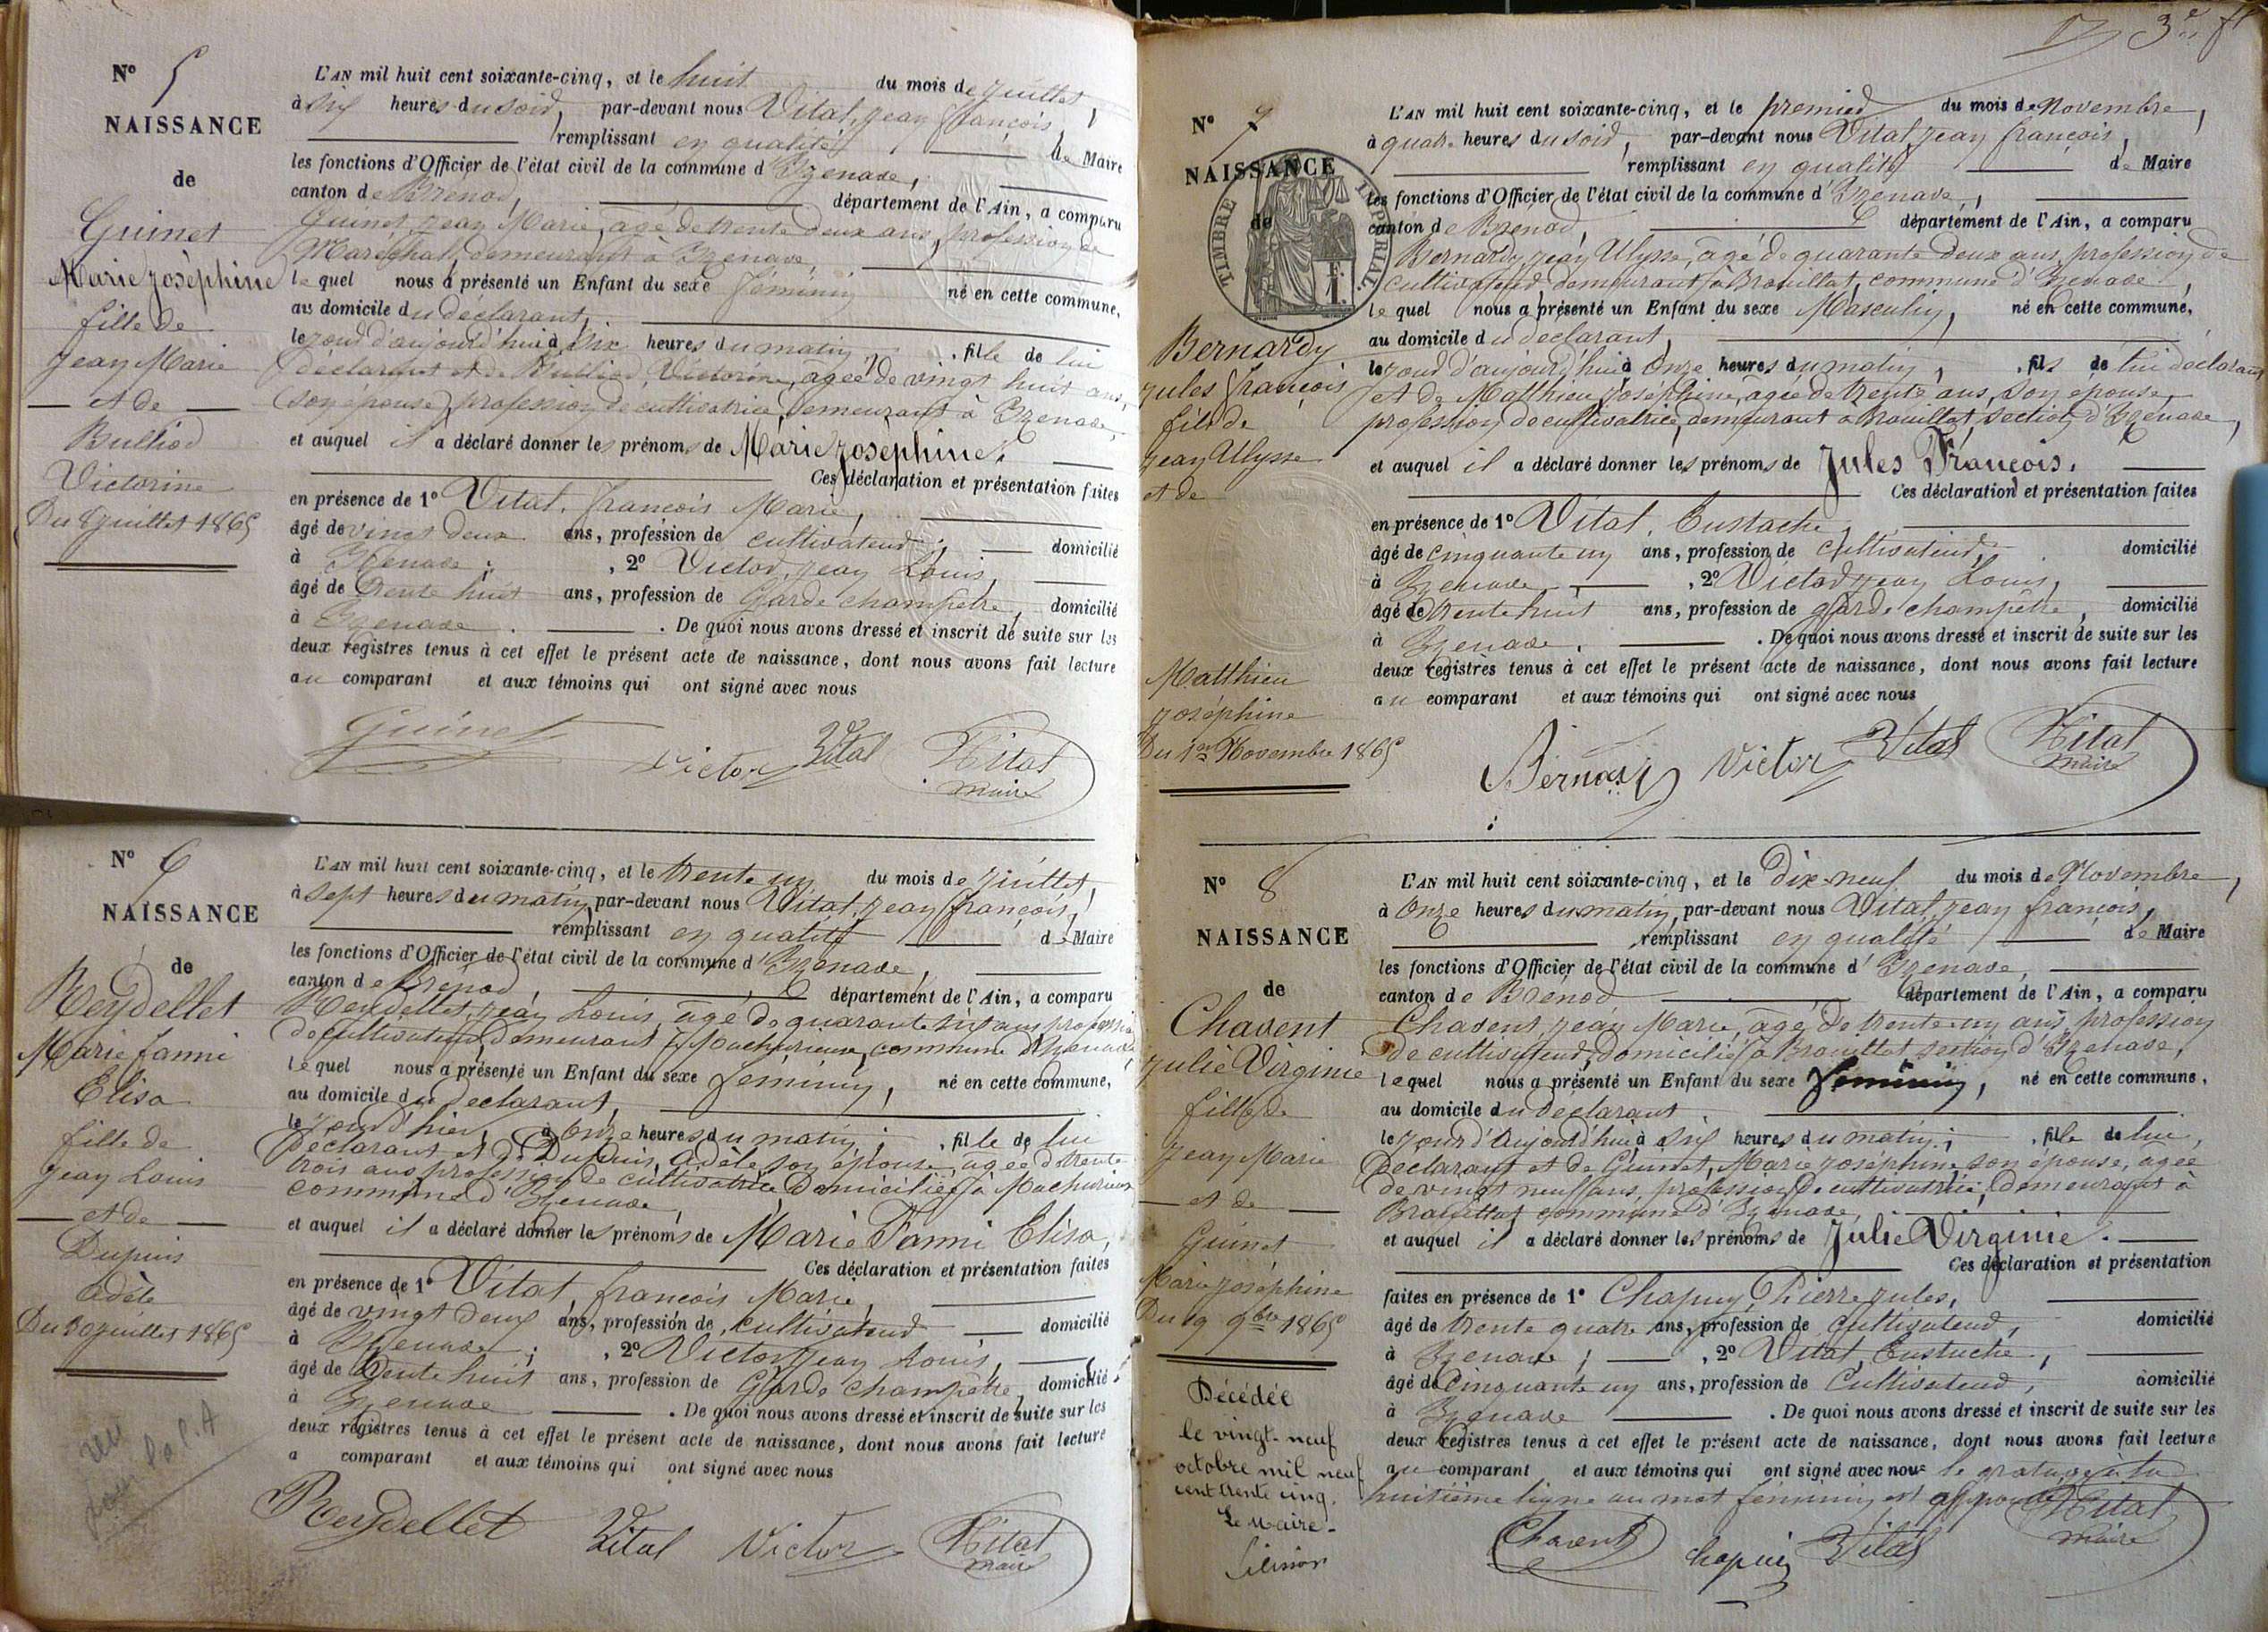 N° 5
NAISSANCE
de
Guinet
Marie Joséphine
fille de
Jean Marie
— et de —
Bulliod
Victorine
Du 8 juillet 1865
L'AN mil huit cent soixante-cinq, et le huit du mois de juillet,
à six heures du soir, par-devant nous Vital, Jean François,
remplissant en qualité de Maire
les fonctions d'Officier de l'état civil de la commune d'Izenave,
canton de Brenod, département de l'Ain, a comparu
Guinet, Jean Marie, agé de trente deux ans, profession de
Maréchal, demeurant à Izenave,
lequel nous a présenté un Enfant du sexe féminin né en cette commune,
au domicile du déclarant,
le jour d'aujourd'hui à dix heures du matin, fille de lui
déclarant et de Bulliod, Victorine, agée de vingt huit ans,
son épouse, profession de cultivatrice, demeurant à Izenave,
et auquel il a déclaré donner les prénoms de Marie Joséphine.
Ces déclaration et présentation faites
en présence de 1° Vital, François Marie,
âgé de vingt deux ans, profession de cultivateur, domicilié
à Izenave, 2° Victor, Jean Louis,
âgé de trente huit ans, profession de Garde champêtre, domicilié
à Izenave. De quoi nous avons dressé et inscrit de suite sur les
deux registres tenus à cet effet le présent acte de naissance, dont nous avons fait lecture
au comparant et aux témoins qui ont signé avec nous
Guinet Victor Vital Vital
maire
N° 6
NAISSANCE
de
Reydellet
Marie fanni
Elisa
fille de
Jean Louis
— et de —
Dupuis
Adèle
Du 30 juillet 1865
L'AN mil huit cent soixante-cinq, et le trente un du mois de juillet,
à sept heures du matin, par-devant nous Vital, Jean François,
remplissant en qualité de Maire
les fonctions d'Officier de l'état civil de la commune d'Izenave,
canton de Brénod, département de l'Ain, a comparu
Reydellet, Jean Louis, agé de quarante six ans, profession
de cultivateur, demeurant à Machurieux, commune d'Izenave
lequel nous a présenté un Enfant du sexe féminin, né en cette commune,
au domicile du déclarant,
le jour d'hier, à onze heures du matin, fille de lui
déclarant et de Dupuis, Adèle, son épouse, agée de trente
trois ans, profession de cultivatrice, domiciliée à Machurieux
commune d'Izenave,
et auquel il a déclaré donner les prénoms de Marie Fanni Elisa,
Ces déclaration et présentation faites
en présence de 1° Vital, François Marie,
âgé de vingt deux ans, profession de cultivateur domicilié
à Izenave; 2° Victor, Jean Louis,
âgé de trente huit ans, profession de Garde champêtre, domicilié
à Izenave. De quoi nous avons dressé et inscrit de suite sur les
deux registres tenus à cet effet le présent acte de naissance, dont nous avons fait lecture
a comparant et aux témoins qui ont signé avec nous
Reydellet Vital Victor Vital
maire
3e ft
N° 7
NAISSANCE
de
TIMBRE IMPERIAL
Bernardy
Jules françois
fils de
Jean Ulysse
et de
Matthieu
Joséphine
Du 1er Novembre 1865
L'AN mil huit cent soixante-cinq, et le premier du mois de Novembre,
à quatre heures du soir, par-devant nous Vital, Jean françois,
remplissant en qualité de Maire
les fonctions d'Officier de l'état civil de la commune d'Izenave,
canton de Brénod, département de l'Ain, a comparu
Bernardy, Jean Ulysse, agé de quarante deux ans, profession de
cultivateur, demeurant à Brouillat, commune d'Izenave,
lequel nous a présenté un Enfant du sexe Masculin, né en cette commune,
au domicile du déclarant,
le jour d'aujourd'hui à onze heures du matin, fils de lui déclarant
et de Matthieu, Joséphine, agée de trente ans, son épouse,
profession de cultivatrice, demeurant à Brouillat, section d'Izenave,
et auquel il a déclaré donner les prénoms de Jules François.
Ces déclaration et présentation faites
en présence de 1° Vital, Eustache,
âgé de cinquante un ans, profession de cultivateur, domicilié
à Izenave, 2° Victor, Jean Louis,
âgé de trente huit ans, profession de Garde champêtre, domicilié
à Izenave. De quoi nous avons dressé et inscrit de suite sur les
deux registres tenus à cet effet le présent acte de naissance, dont nous avons fait lecture
au comparant et aux témoins qui ont signé avec nous
Bernardy Victor Vital Vital
maire
N° 8
NAISSANCE
de
Chavent
Julie Virginie
fille de
Jean Marie
— et de —
Guinet
Marie Joséphine
Du 19 9bre 1865
Décédée
le vingt-neuf
octobre mil neuf
cent trente cinq.
Le Maire
L'AN mil huit cent soixante-cinq, et le dix-neuf du mois de Novembre,
à onze heures du matin, par-devant nous Vital, Jean françois,
remplissant en qualité de Maire
les fonctions d'Officier de l'état civil de la commune d'Izenave,
canton de Brénod département de l'Ain, a comparu
Chavent, Jean Marie, agé de trente un ans, profession
de cultivateur, domicilié à Brouillat section d'Izenave,
lequel nous a présenté un Enfant du sexe féminin, né en cette commune,
au domicile du déclarant.
le jour d'aujourd'hui à six heures du matin; fille de lui,
déclarant et de Guinet, Marie Joséphine, son épouse, agée
de vingt neuf ans, profession de cultivatrice, demeurant à
Brouillat commune d'Izenave,
et auquel il a déclaré donner les prénoms de Julie Virginie.
Ces déclaration et présentation
faites en présence de 1° Chapuy, Pierre Jules,
âgé de trente quatre ans, profession de cultivateur, domicilié
à Izenave; 2° Vital, Eustache,
âgé de cinquante un ans, profession de Cultivateur, domicilié
à Izenave. De quoi nous avons dressé et inscrit de suite sur les
deux registres tenus à cet effet le présent acte de naissance, dont nous avons fait lecture
au comparant et aux témoins qui ont signé avec nous le gratage à la
huitième ligne au mot féminin est approuvé
Chavent Chapuy Vital Vital
maire